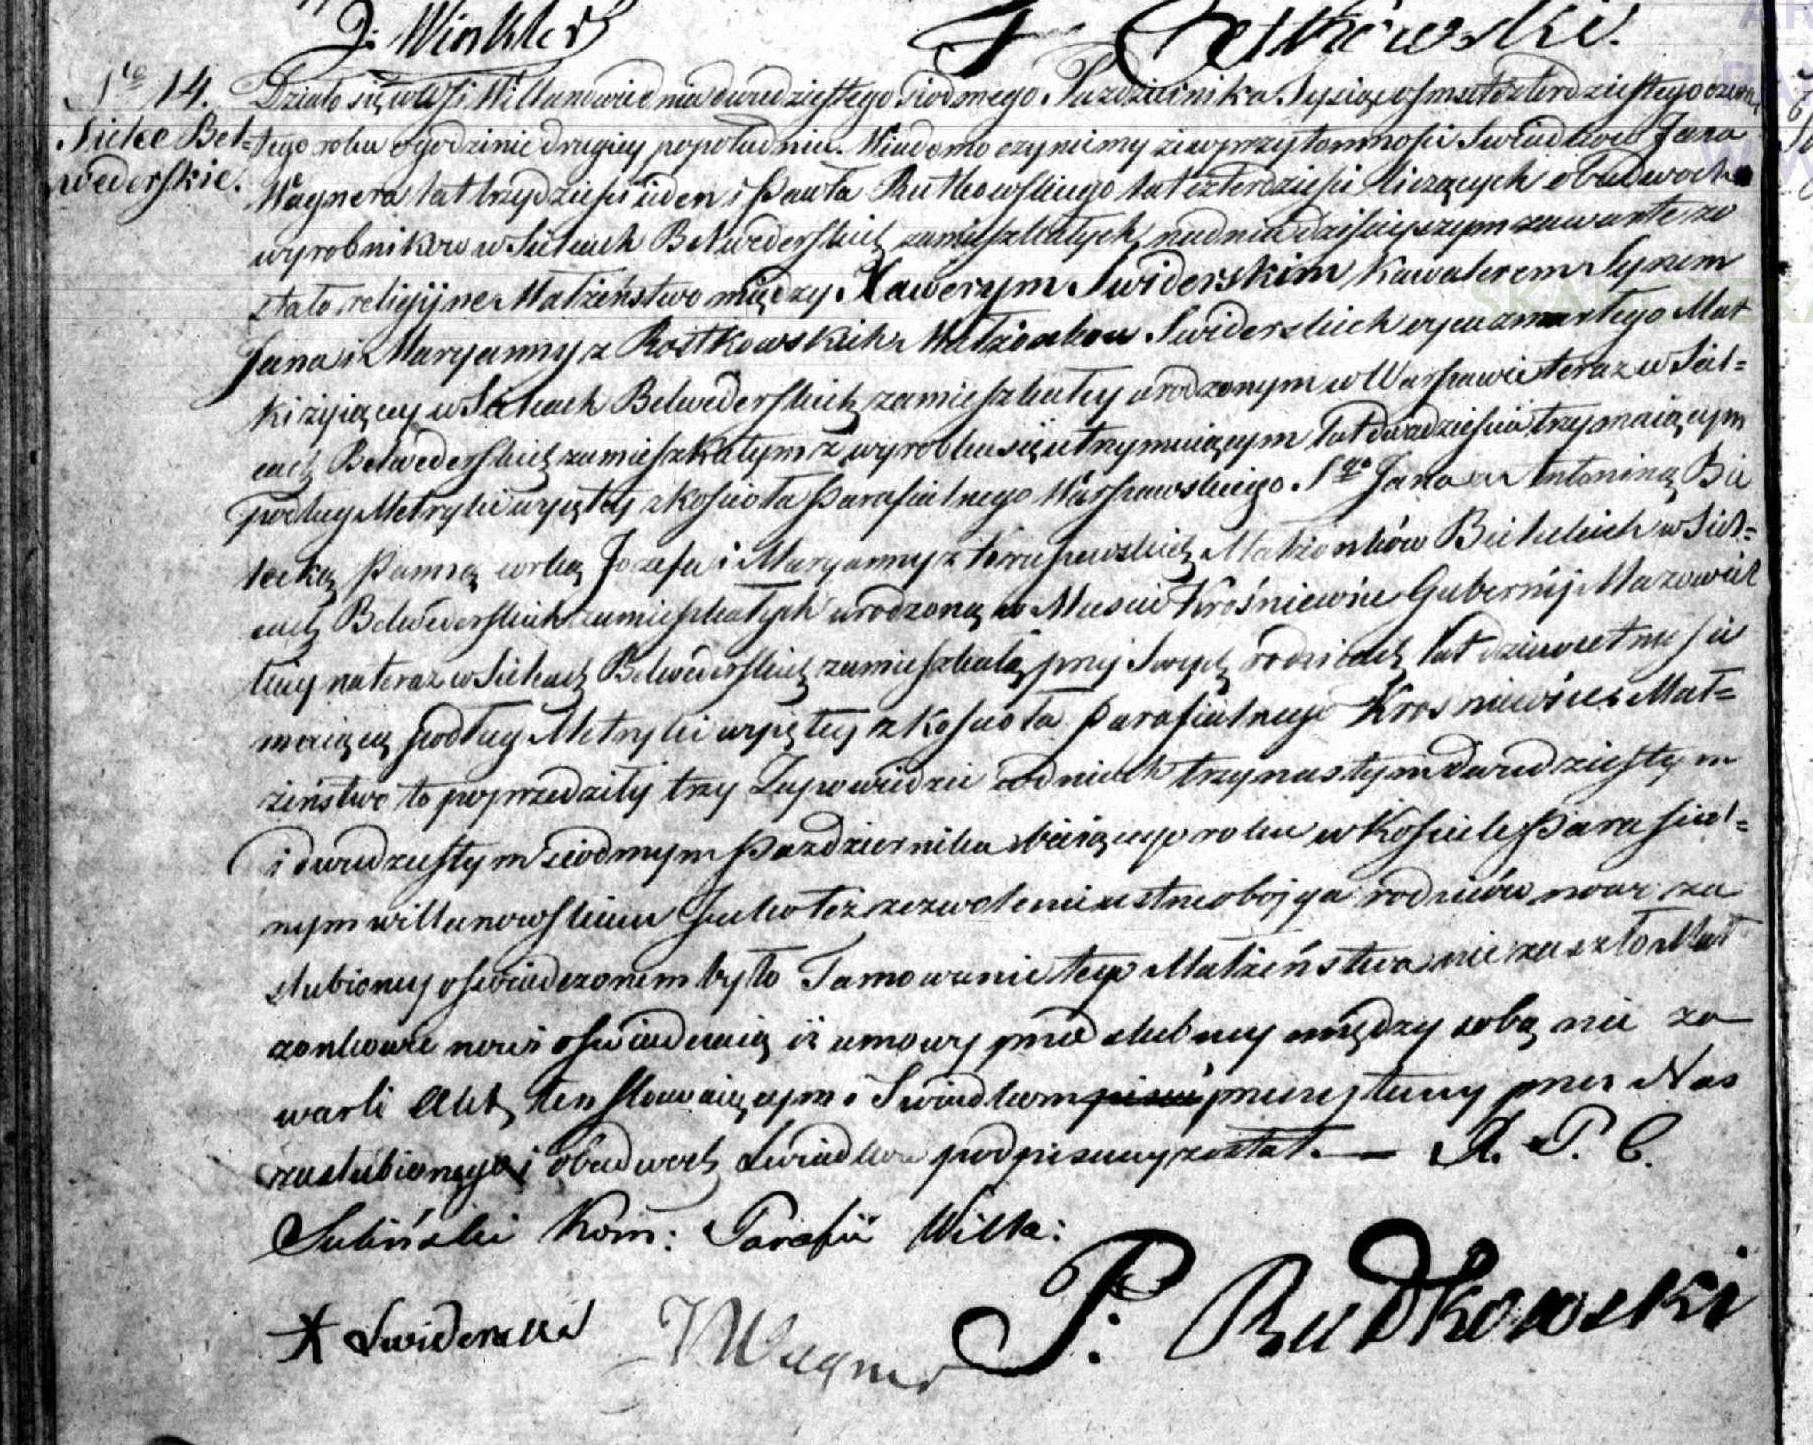 J: Winkler
F Fetkowski.
N^ro 14. Działo się w Wsi Willanowie dnia dwudziestego siodmego Pazdziernika Tysiąc osmset czterdziestego czwar
Sielce Bel= tego roku o godzinie drugiey popołudniu. Wiadomo czyniemy iż w przytomności Świadkow Jana
wederskie. Wagnera lat trzydzieści ieden i Pawła Rutkowskiego lat czterdzieści liczących obudwoch
wyrobnikow w Sielcach Belwederskich zamieszkałych, na dniu dzisieyszym zawarte zo
stało religijne Małżeństwo między Xawerym Swiderskim Kawalerem Synem
Jana i Maryanny z Rostkowskich Małżonkow Swiderskich oyca zmarłego Mat
ki żyiącey w Sielcach Belwederskich zamieszkałey urodzonym w Warszawie teraz w Siel=
cach Belwederskich zamieszkałym z wyrobku się utrzymuiącym lat dwadzieścia trzy maiącym
podług Metryki wyiętey z kościoła Parafialnego Warszawskiego S^go Jana a Antoniną Bie
lecką Panną corką Jozefa i Maryanny z Małżonków Bieleckich w Siel=
cach Belwederskich zamieszkałych urodzoną w Miescie Krośniewice Gubernij Mazowiec
kiey na teraz w Sielcach Belwederskich zamieszkałą przy Swych rodzicach lat dziewietnaście
maiącą podług Metryki wyiętey z kościoła Parafialnego Krosniewice Mał=
żeństwo to poprzedziły trzy Zapowiedzie w dniach trzynastym dwudziestym
i dwudziestym siodmym Pazdziernika bieżącego roku w Kościele Parafial=
nym willanowskim Jako też zezwolenie ustne obojga rodziców nowo za
slubioney oświadczonem było Tamowanie tego Małżeństwa nie zaszło Mał
żonkowie nowi oświadczaią iż umowy przed slubney między sobą nie za
warli Akt ten stawaiącym i Swiadkom przeczytany przez Nas
zaslubionego i obudwoch Swiadkow podpisany został. — X. P. C.
Suliński Kom: Parafii Willa:
X Swiderski J Wagner P: Rudkowski